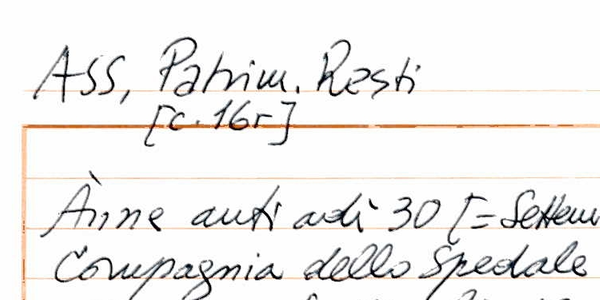 ASS, Patrim. Resti
[c. 16r]
Ànne auti adì 30 [= Settem
Compagnia dello Spedale